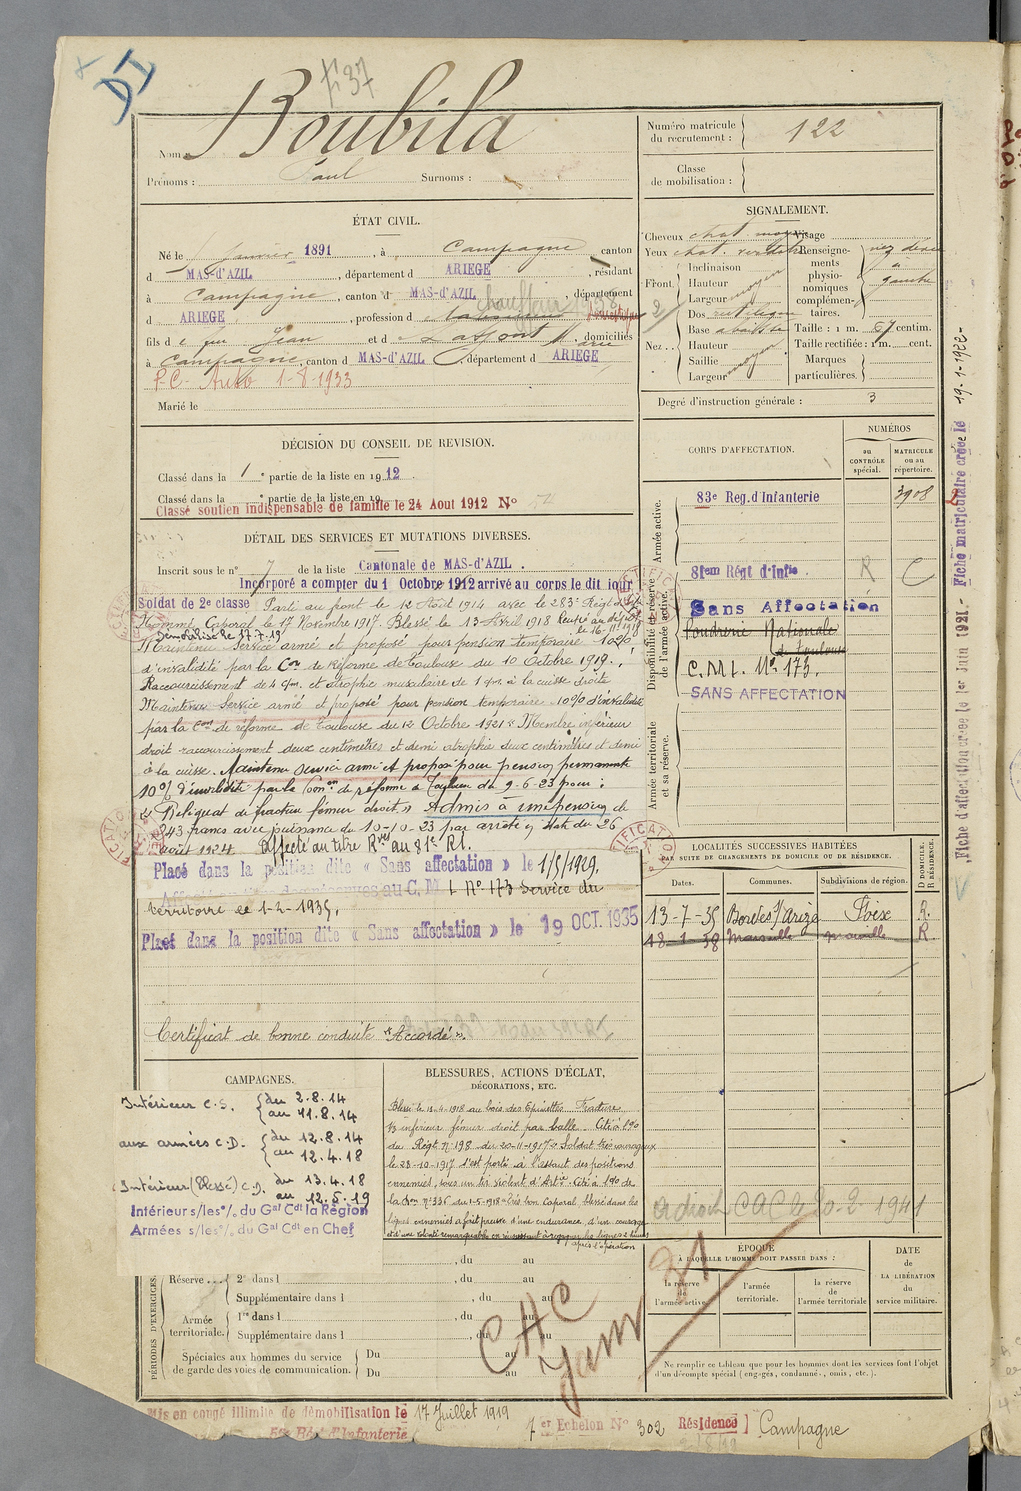 DI
F 37
Boubila
Nom :
Prénoms : Paul Surnoms :
Numéro matricule
du recrutement : 122
Classe
de mobilisation :
ÉTAT CIVIL.
Né le 1 Janvier 1891, à Campagne, canton
d MAS-d'AZIL, département d ARIEGE, résidant
à Campagne, canton d MAS-d'AZIL, département
chauffeur 1938
d ARIEGE, profession d domestique
fils d e feu Jean et d e Lafont Marie, domiciliés
à Campagne canton d MAS-d'AZIL, département d ARIEGE
P.C. Auto 1-8-1933
Marié le
SIGNALEMENT.
Cheveux chat. moyen Visage
Yeux chat. verdâtre
Front. Inclinaison
Hauteur moyen
Largeur
Nez .. Dos rectiligne
Base abaissée
Hauteur
Saillie moyen
Largeur
Renseigne-
ments
physio-
nomiques
complémen-
taires.
nez dévié
à
gauche
Taille : 1 m. 67 centim.
Taille rectifiée : 1 m. cent.
Marques
particulières.
Degré d'instruction générale : 3
DÉCISION DU CONSEIL DE REVISION.
Classé dans la 1e partie de la liste en 1912.
Classé dans la e partie de la liste en 19
Classé soutien indispensable de famille le 24 Aout 1912 N°
DÉTAIL DES SERVICES ET MUTATIONS DIVERSES.
Inscrit sous le n° 7 de la liste Cantonale de MAS-d'AZIL.
Incorporé a compter du 1 Octobre 1912 arrivé au corps le dit jour
Soldat de 2e classe Parti au front le 12 Août 1914 avec le 283e Régt d'Inf
Nommé Caporal le 17 Novembre 1917. Blessé le 13 Avril 1918 Rentré au dépôt
le 16-11-1918
Démobilisé le 17.7.19
Maintenu Service armé et proposé pour pension temporaire 10%
d'invalidité par la Con de Réforme de Toulouse du 10 Octobre 1919.
Raccourcissement de 4 c/m. et atrophie musculaire de 1 c/m. à la cuisse droite
Maintenu Service armé et proposé pour pension temporaire 10% d'invalidité
par la Con de réforme de Toulouse du 12 Octobre 1921 « Membre inférieur
droit raccourcissement deux centimètres et demi atrophie deux centimètres et demi
à la cuisse. Maintenu service armé et proposé pour pension permanente
10% d'invalidité par la Comon de réforme de Toulouse du 9-6-23 pour :
« Reliquat de fracture fémur droit. » Admis à une pension de
243 francs avec jouissance du 10-10-23 par arrêté en date du 26
Août 1924. Affecté au titre Rves au 81e R.I.
Placé dans la position dite « Sans affectation » le 1/5/1929.
au C.M.I. N° 173 Service du
territoire le 1-2-1935.
Placé dans la position dite « Sans affectation » le 19 OCT. 1935
Certificat de bonne conduite "Accordé".
CORPS D'AFFECTATION.
NUMÉROS
au
CONTRÔLE
spécial.
MATRICULE
ou au
répertoire.
Armée active.
83e Reg. d'Infanterie 3908
Disponibilité de réserve
de l'armée active.
81em Régt d'Infie R C
Sans Affectation
Poudrerie Nationale
de Toulouse
C.M.I. N° 173.
SANS AFFECTATION
Armée territoriale
et sa réserve.
LOCALITÉS SUCCESSIVES HABITÉES
PAR SUITE DE CHANGEMENTS DE DOMICILE OU DE RÉSIDENCE.
Dates. Communes. Subdivisions de région. D DOMICILE. R RÉSIDENCE.
13-7-35 Bordes s/ Arize Foix R.
18-1-38 Marseille Marseille R.
CAC le 20-2-1941
CAMPAGNES.
Intérieur C.S. du 2.8.14
au 11.8.14
aux armées C.D. du 12.8.14
au 12.4.18
Intérieur (Blessé) C.D. du 13.4.18
au 12.5.19
Intérieur s/les % du Gal Cdt la Région
Armées s/les % du Gal Cdt en Chef
BLESSURES, ACTIONS D'ÉCLAT,
DÉCORATIONS, ETC.
Blessé le 13-4-1918 au bois des Epinettes Fracture
1/3 inférieur fémur droit par balle. Cité à l'o/
du Régt N° 198 du 20-11-1917 « Soldat très courageux
le 23-10-1917 s'est porté à l'assaut des positions
ennemies, sous un tir violent d'Artie. Cité à l'o/ de
la Don N° 336 du 1-5-1918 « Très bon Caporal blessé dans les
lignes ennemies a fait preuve d'une endurance, d'un courage
et d'une volonté remarquable en réussissant à regagner les lignes 2 heures
après l'opération
PÉRIODES D'EXERCICES.
, du au
Réserve ... 2e dans l , du au
Supplémentaire dans l , du au
Armée
territoriale. 1re dans l , du au
Supplémentaire dans l , du au
Spéciales aux hommes du service
de garde des voies de communication. Du au
Du au
CAC
31
ÉPOQUE
À LAQUELLE L'HOMME DOIT PASSER DANS :
la réserve
de
l'armée active.
l'armée
territoriale.
la réserve
de
l'armée territoriale
DATE
de
LA LIBÉRATION
du
service militaire.
Ne remplir ce tableau que pour les hommes dont les services font l'objet
d'un décompte spécial (engagés, condamné, omis, etc.).
Mis en congé illimité de démobilisation le 17 Juillet 1919
Rég t d'Infanterie
7 er Echelon N° 302 Résidence] Campagne
Fiche d'affectation créée le 1er Juin 1921. - Fiche matriculaire créée le 19-1-1922-